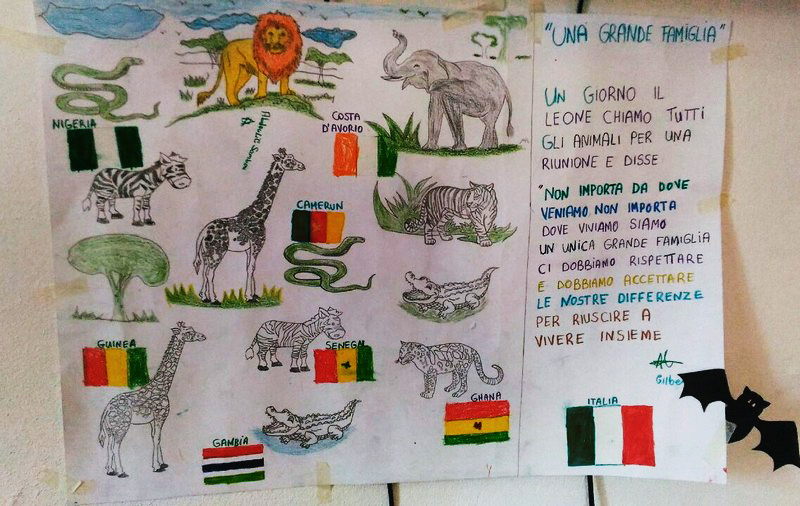 NIGERIA
COSTA
D'AVORIO
CAMERUN
GUINEA
SENEGAL
GHANA
GAMBIA
"UNA GRANDE FAMIGLIA"
UN GIORNO IL
LEONE CHIAMO TUTTI
GLI ANIMALI PER UNA
RIUNIONE E DISSE
"NON IMPORTA DA DOVE
VENIAMO NON IMPORTA
DOVE VIVIAMO SIAMO
UN UNICA GRANDE FAMIGLIA
CI DOBBIAMO RISPETTARE
E DOBBIAMO ACCETTARE
LE NOSTRE DIFFERENZE
PER RIUSCIRE A
VIVERE INSIEME
Gilbe
ITALIA